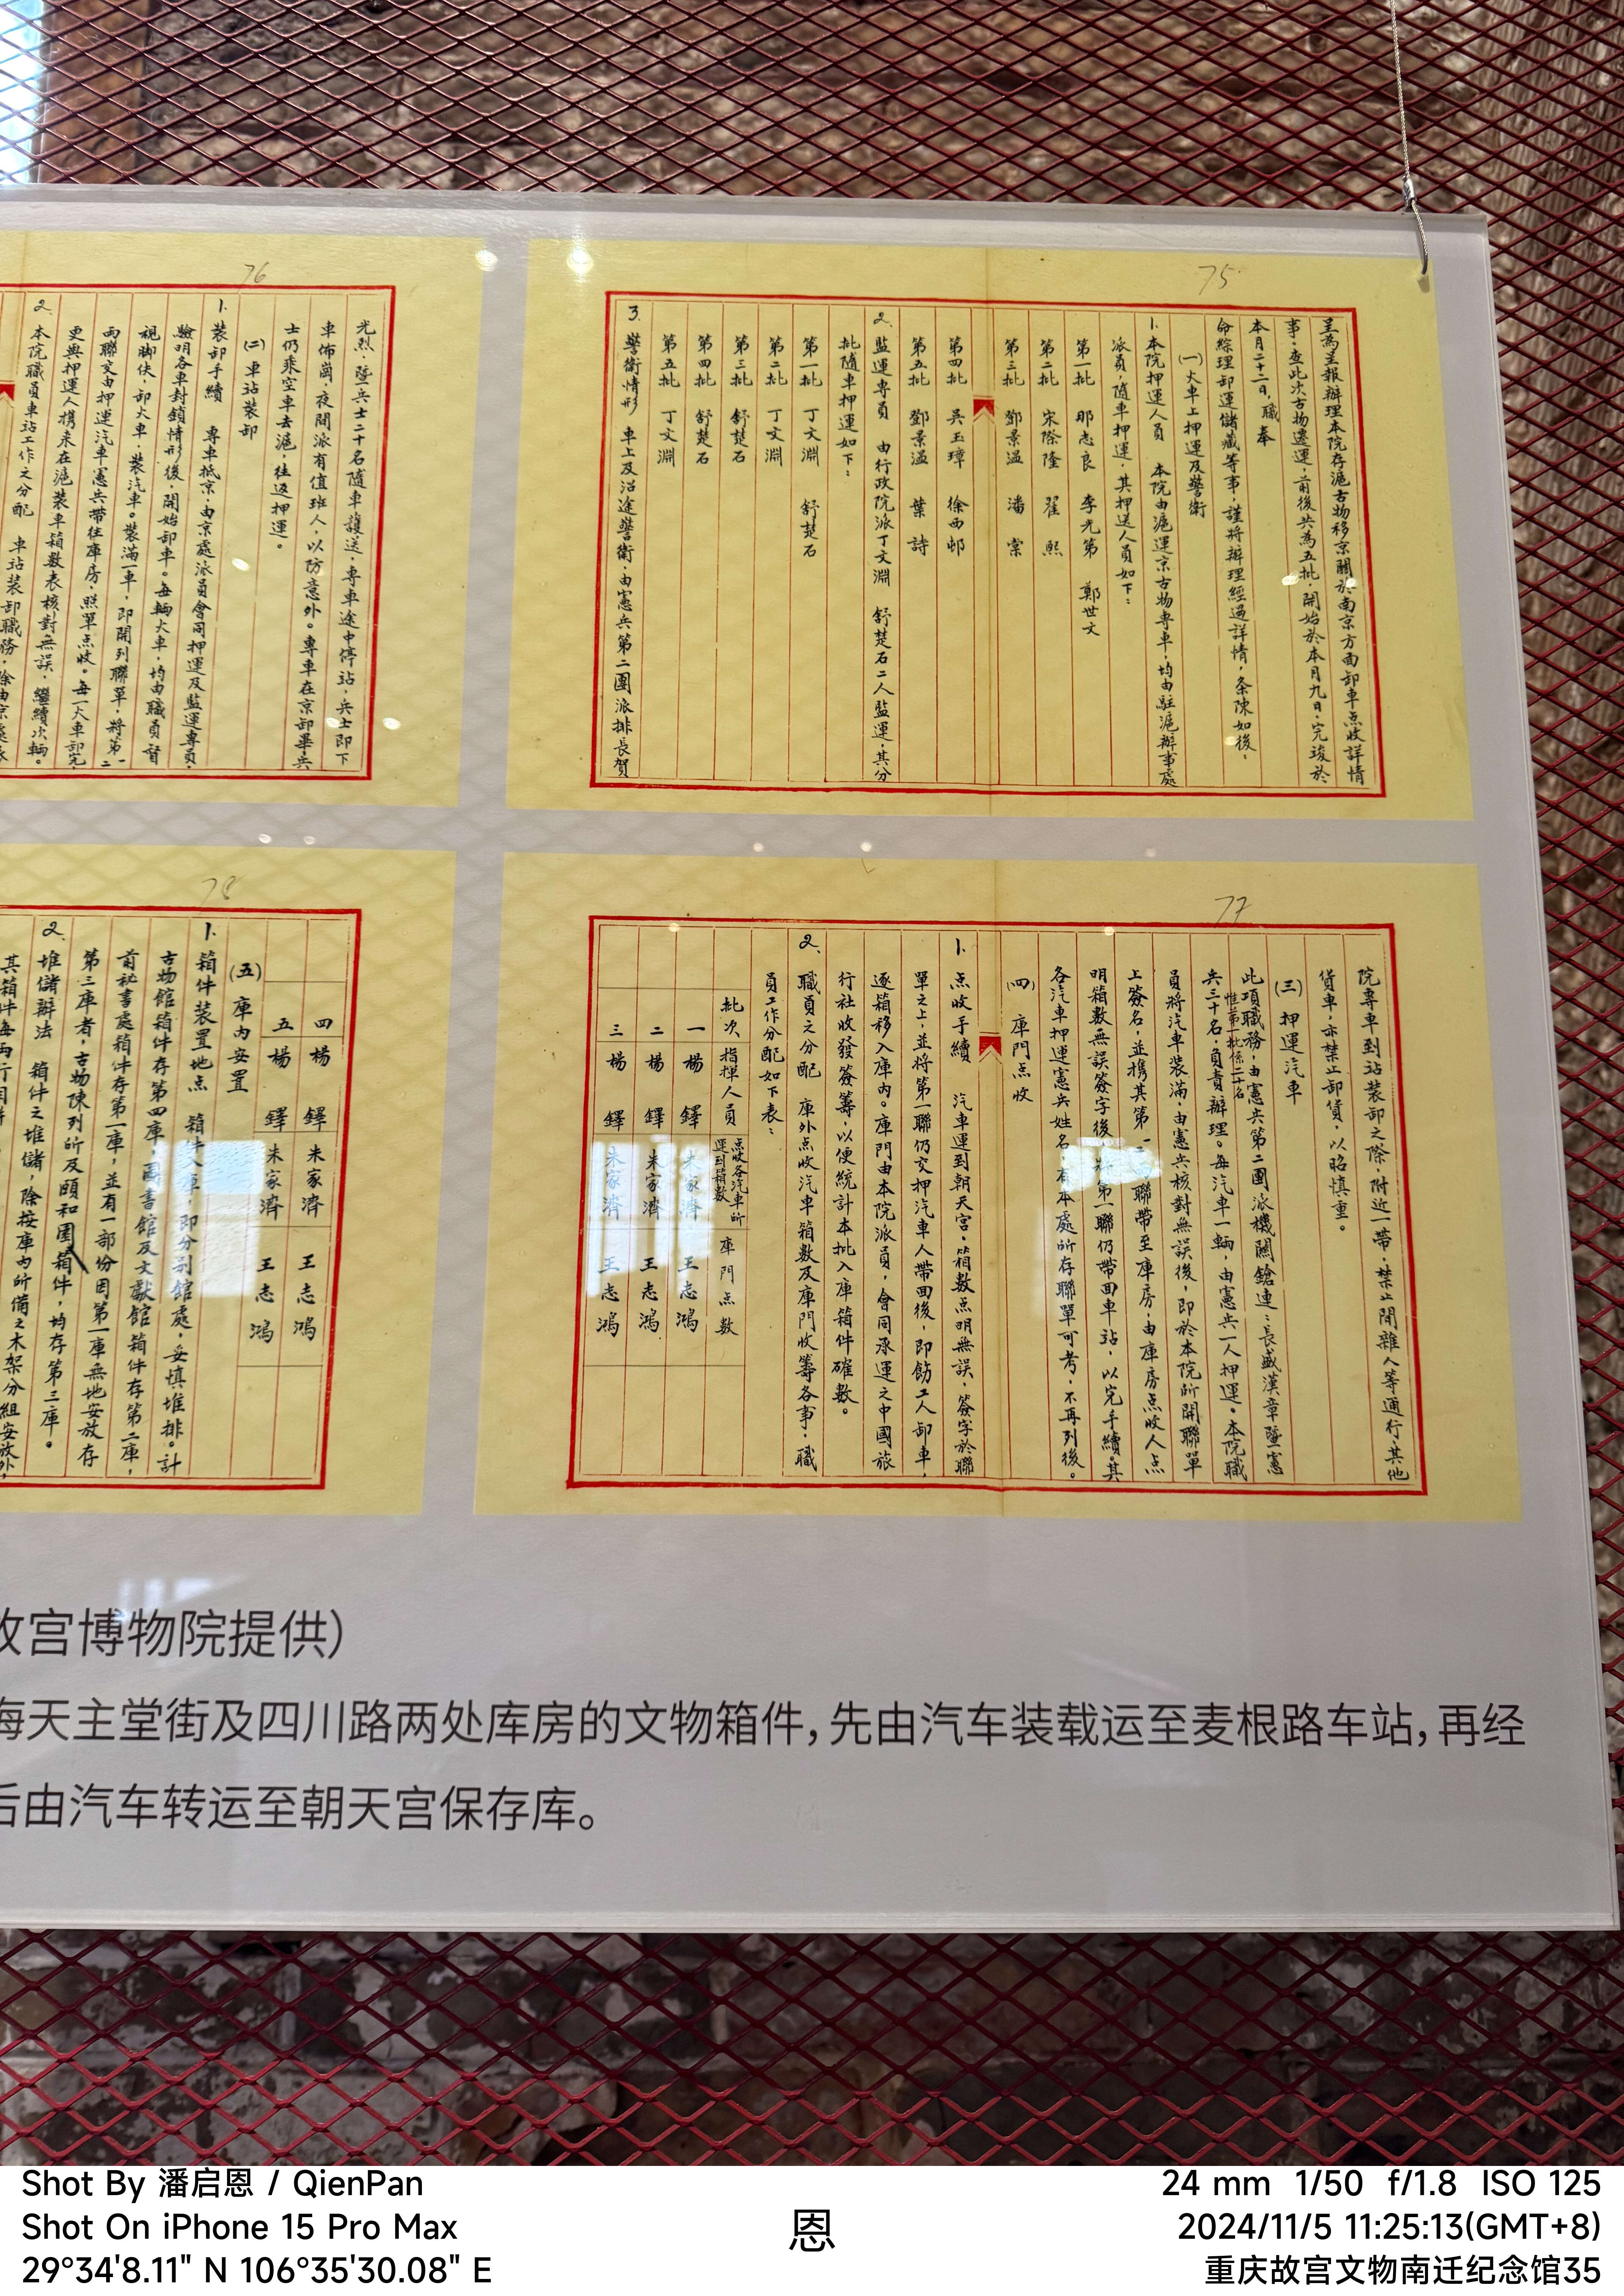 75
呈為呈報辦理本院存滬古物移京關於南京方面卸車点收詳情
事。查此次古物遷運，前後共為五批，開始於本月九日，完竣於
本月二十二日，職奉
命綜理卸運儲藏等事，謹將辦理經過詳情，条陳如後。
(一)火車上押運及警衛
1. 本院押運人員　本院由滬運京古物專車，均由駐滬辦事處
派員，隨車押運，其押送人員如下：
第一批　那志良　李光第　鄭世文
第二批　宋際隆　翟熙
第三批　鄧景溫　潘
第四批　吳玉璋　徐西邨
第五批　鄧景溫　葉詩
2. 監運專員　由行政院派丁文淵　舒楚石二人監運，其分
批隨車押運如下：
第一批　丁文淵　舒楚石
第二批　丁文淵
第三批　舒楚石
第四批　舒楚石
第五批　丁文淵
3. 警衛情形　車上及沿途警衛，由憲兵第二團派排長賀
76
光烈，暨兵士二十名隨車護送，專車途中停站，兵士即下
車佈崗，夜間派有值班人，以防意外。專車在京卸畢，兵
士仍乘空車去滬，往返押運。
(二)車站裝卸
1. 裝卸手續　專車抵京，由京處派員會同押運及監運專員，
驗明各車封鎖情形後，開始卸車。每輛火車，均由職員督
視脚伕，卸火車，裝汽車。裝滿一車，即開列聯單，將第一二
兩聯交由押運汽車憲兵帶往庫房，照單点收。每一火車卸完，
更與押運人携來在滬裝車箱數表核對無誤，繼續次輛。
2. 本院職員車站工作之分配　車站裝卸職務，除由京處派
77
院專車到站裝卸之際，附近一帶，禁止閒雜人等通行，其他
貨車，亦禁止卸貨，以昭慎重。
(三)押運汽車
此項職務，由憲兵第二團派機關鎗連：長盛漢章暨憲
惟第一批係二十名
兵三十名，員責辦理。每汽車一輛，由憲兵一人押運。本院職
員將汽車裝滿，由憲兵核對無誤後，即於本院所開聯單
上簽名，並携其第一二聯帶至庫房，由庫房点收人点
明箱數無誤簽字後，第一聯仍帶回車站，以完手續。其
各汽車押運憲兵姓名，有本處所存聯單可考，不再列後。
(四)庫門点收
1. 点收手續　汽車運到朝天宮，箱數点明無誤，簽字於聯
單之上，並將第一聯仍交押汽車人帶回後，即飭工人卸車，
逐箱移入庫內。庫門由本院派員，會同承運之中國旅
行社收發簽籌，以便統計本批入庫箱件確數。
2. 職員之分配　庫外点收汽車箱數及庫門收籌各事，職
員工作分配如下表：
批次　指揮人員　点收各汽車所運到箱數　庫門点數
一　楊鐸　朱家濟　王志鴻
二　楊鐸　朱家濟　王志鴻
三　楊鐸　朱家濟　王志鴻
78
四　楊鐸　朱家濟　王志鴻
五　楊鐸　朱家濟　王志鴻
(五)庫內安置
1. 箱件裝置地点　箱件入庫，即分别館處，妥慎堆排。計
古物館箱件存第四庫，圖書館及文獻館箱件存第二庫，
前祕書處箱件存第一庫，並有一部份因第一庫無地安放存
第三庫者，古物陳列所及頤和園箱件，均存第三庫。
2. 堆儲辦法　箱件之堆儲，除按庫內所備之木架分組安放外，
其箱件每兩行
故宫博物院提供）
海天主堂街及四川路两处库房的文物箱件，先由汽车装载运至麦根路车站，再经
后由汽车转运至朝天宫保存库。
Shot By 潘启恩 / QienPan
Shot On iPhone 15 Pro Max
29°34'8.11" N 106°35'30.08" E
恩
24 mm 1/50 f/1.8 ISO 125
2024/11/5 11:25:13(GMT+8)
重庆故宫文物南迁纪念馆35